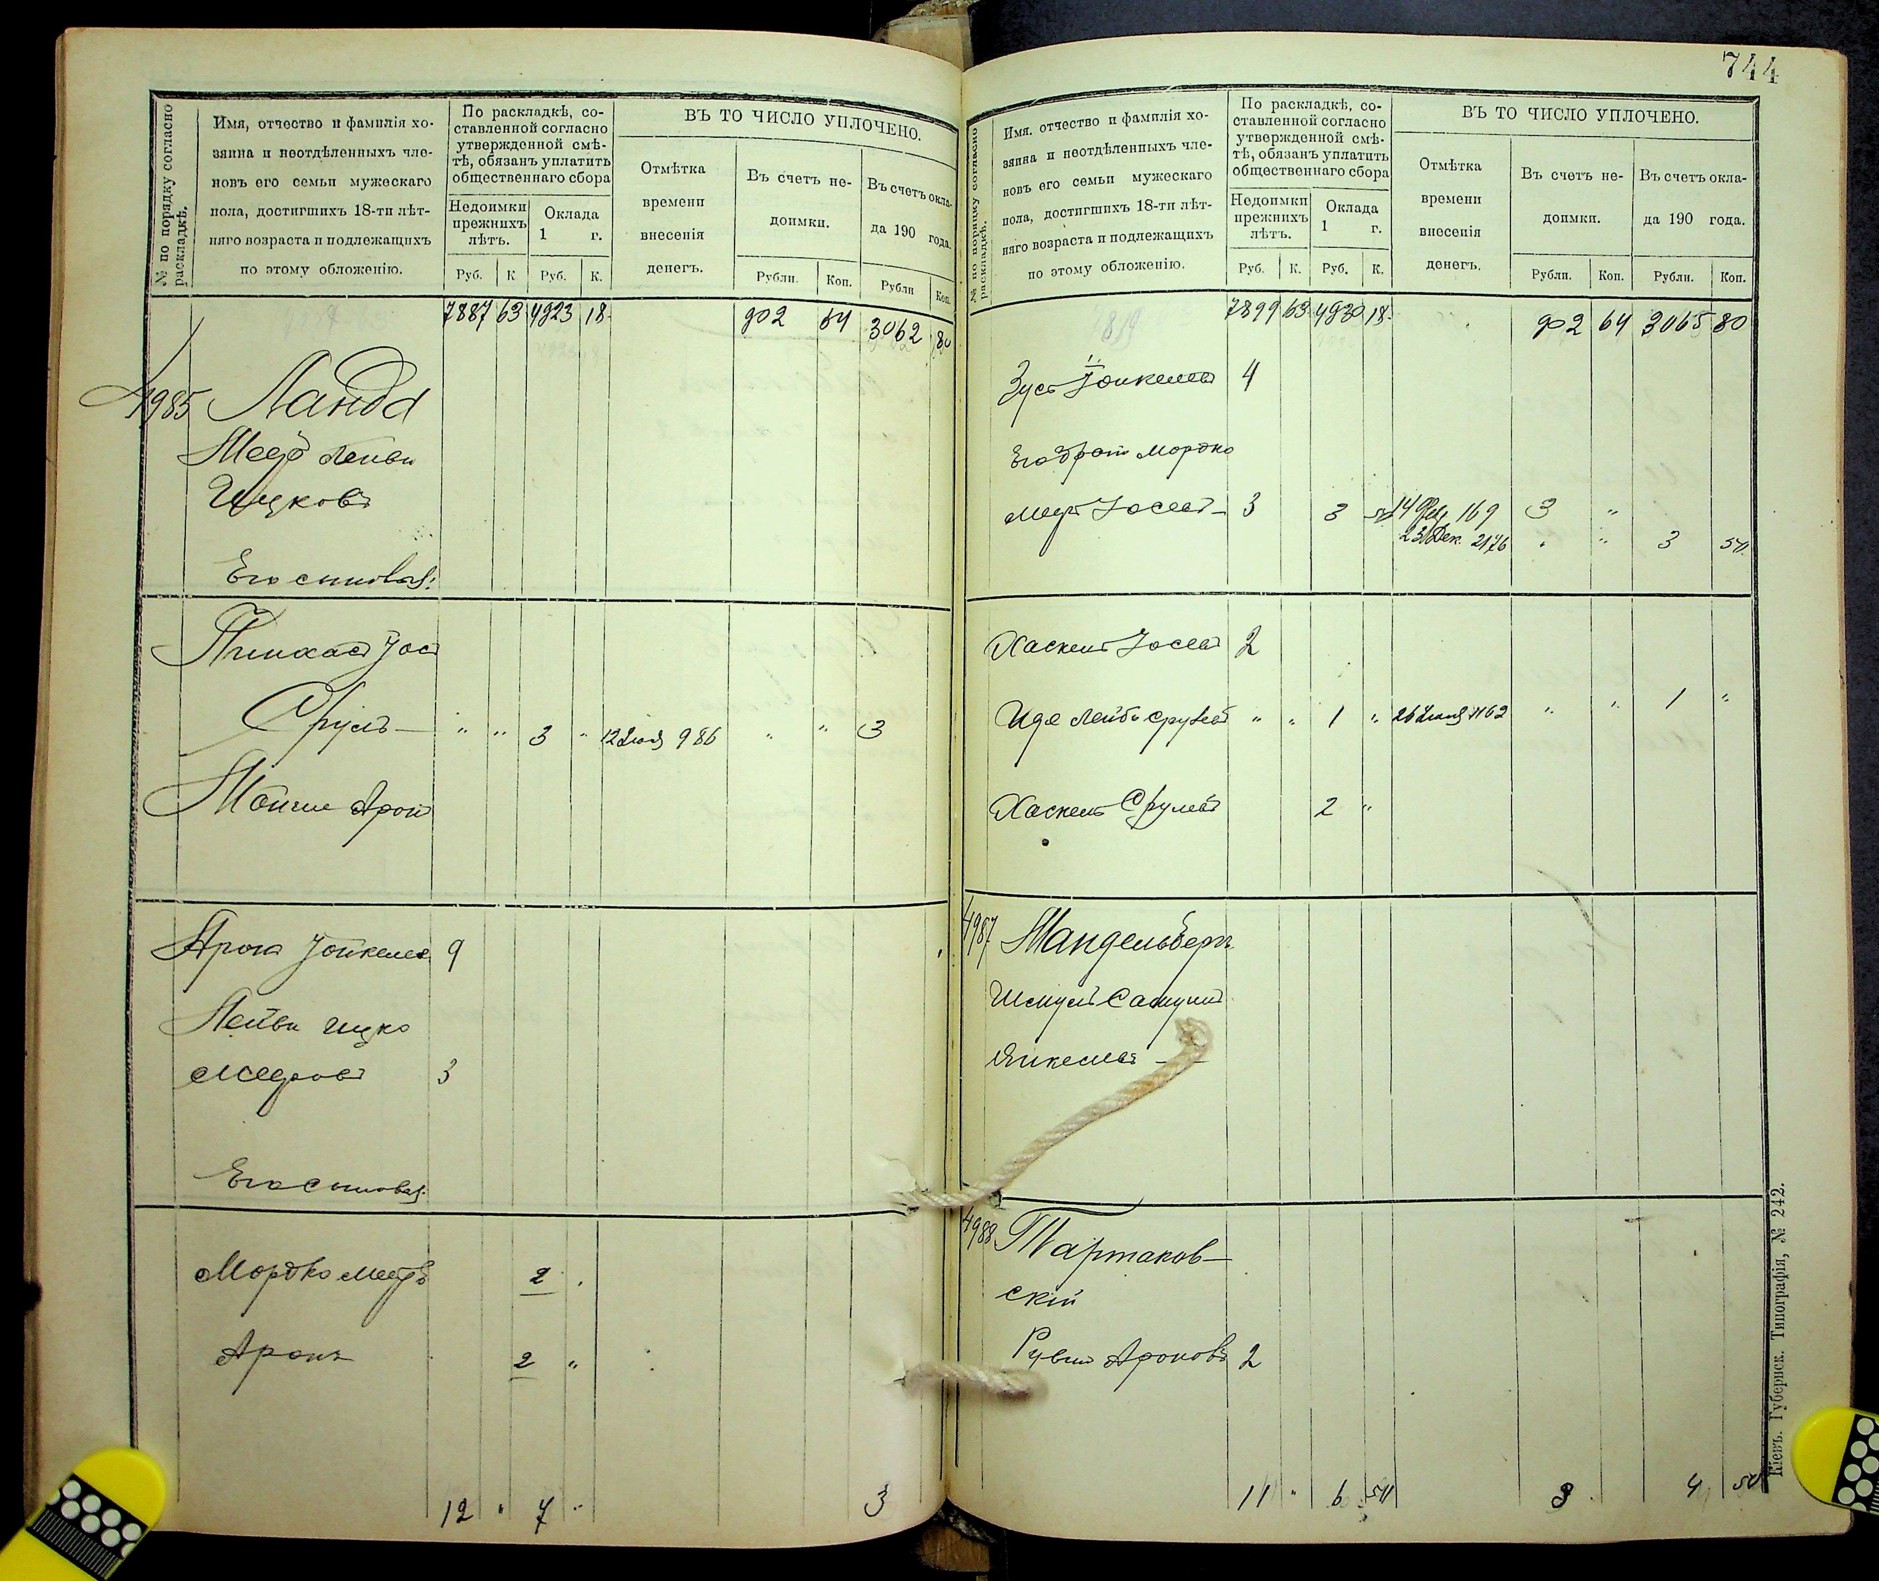 744
№ по порядку согласно раскладкѣ.
Имя, отчество и фамилія хо-
зяина и неотдѣленныхъ чле-
новъ его семьи мужескаго
пола, достигшихъ 18-ти лѣт-
няго возраста и подлежащихъ
по этому обложенію.
По раскладкѣ, со-
ставленной согласно
утвержденной смѣ-
тѣ, обязанъ уплатить
общественнаго сбора
Недоимки
прежнихъ
лѣтъ.
Оклада
1 г.
Руб. К. Руб. К.
ВЪ ТО ЧИСЛО УПЛОЧЕНО.
Отмѣтка
времени
внесенія
денегъ.
Въ счетъ не-
доимки.
Въ счетъ окла-
да 190 года.
Рубли. Коп. Рубли Коп.
7887 63 4923 18 902 64 3062 80
4985 Ланда
Меер Лейви
Ицковъ
Его сыновья:
Пинхас Іос
Сруль — " " 3 " 12 Іюля 986 " " 3
Мойше Арон
Арона Іойкелев 9
Лейви Ицко
Мееров 3
Его сыновья:
Мордко Меер 2
Аронъ 2 "
12 " 7 " 3
№ по порядку согласно раскладкѣ.
Имя. отчество и фамилія хо-
зяина и неотдѣленныхъ чле-
новъ его семьи мужескаго
пола, достигшихъ 18-ти лѣт-
няго возраста и подлежащихъ
по этому обложенію.
По раскладкѣ, со-
ставленной согласно
утвержденной смѣ-
тѣ, обязанъ уплатить
общественнаго сбора
Недоимки
прежнихъ
лѣтъ.
Оклада
1 г.
Руб. К. Руб. К.
ВЪ ТО ЧИСЛО УПЛОЧЕНО.
Отмѣтка
времени
внесенія
денегъ.
Въ счетъ не-
доимки.
Въ счетъ окла-
да 190 года.
Рубли. Коп. Рубли. Коп.
7899 63 4930 18 902 64 3065 80
Зусь Іойкелев 4
Его брат Мордко
Меер Іосев — 3 3 54 14 169 3 "
23 Дек. 2176 " " 3 54
Хаскель Іосев 2
Идя Лейби Срулев " " 1 " 26 Іюля 1162 " " 1 "
Хаскель Срулев 2 "
4987 Мандельберг
Шмуль
Янкелев —
4988 Тартаков-
скій
Рувин Ароновъ 2
11 " 6 54 3 4 54
Кіевъ. Губернск. Типографія, № 242.